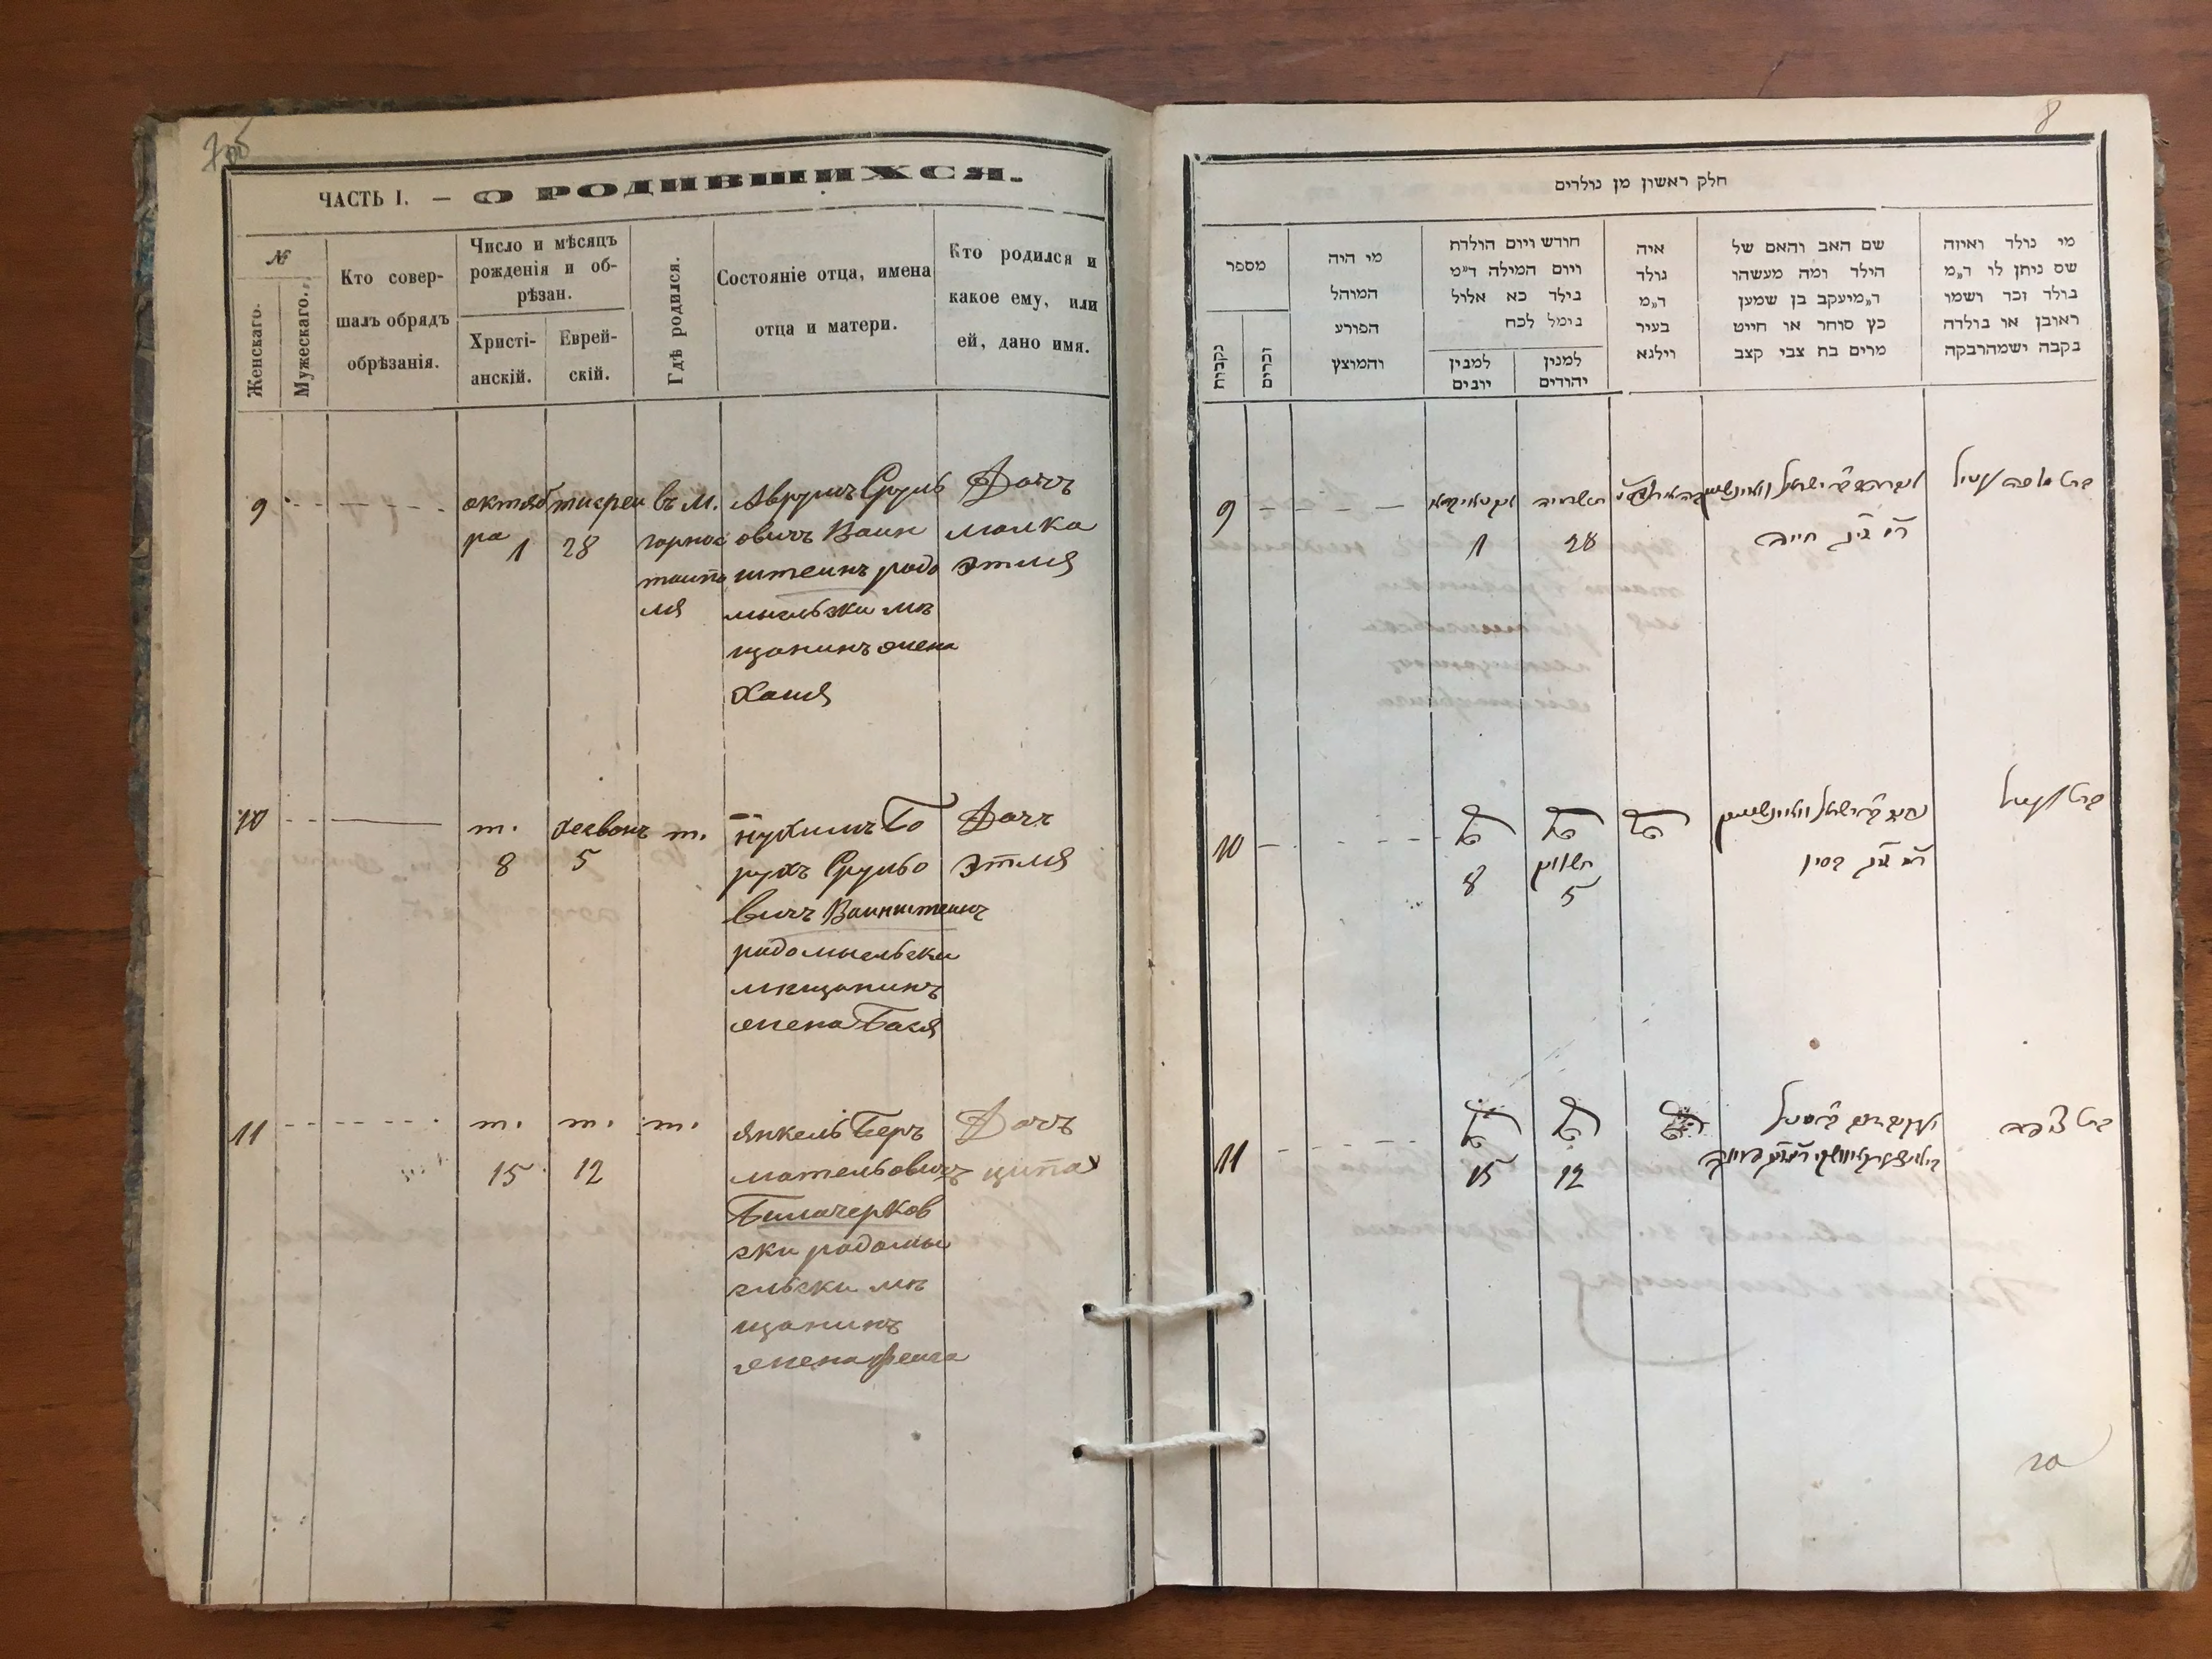 7об
ЧАСТЬ I. — О РОДИВШИХСЯ.
№
Женскаго.
Мужескаго.
Кто совер-
шалъ обрядъ
обрѣзанія.
Число и мѣсяцъ
рожденія и об-
рѣзан.
Христі-
анскій.
Еврей-
скій.
Гдѣ родился.
Состояніе отца, имена
отца и матери.
Кто родился и
какое ему, или
ей, дано имя.
9
октяб
ра 1
тисреи
28
въ м.
горнос
таипо
ля
Аврумъ Сруль
овичъ Ваин
штеинъ радо
мысльзки мѣ
щанинъ жена
Хаия
Дочъ
малка
этля
10
т.
8
хесвонъ
5
т.
нухимъ Бо
рухъ Срульо
вичъ Ваинштеинъ
радомысльски
мещанинъ
жена Бася
Дочъ
этля
11
т.
15
т.
12
т.
Янкель Беръ
мательовичъ
Билачерков
зки радомы
сльски мѣ
щанинъ
жена феига
Дочъ
ципа
8
חלק ראשון מן נולדים
מספר
נקבות
זכרים
מי היה
המוהל
הפורע
והמוצץ
חודש ויום הולדת
ויום המילה ד״מ
נילד כא אלול
נימל לכח
למנין
יונים
למנין
יהודים
איה
נולד
ד״מ
בעיר
וילנא
שם האב והאם של
הילד ומה מעשהו
ד״מיעקב בן שמען
כץ סוחר או חייט
מרים בת צבי קצב
מי נולד ואיזה
שם ניתן לו ד״מ
נולד זכר ושמו
ראובן או נולדה
נקבה ישמהרבקה
9
1
28
חייה
10
8
חשון
5
11
15
12